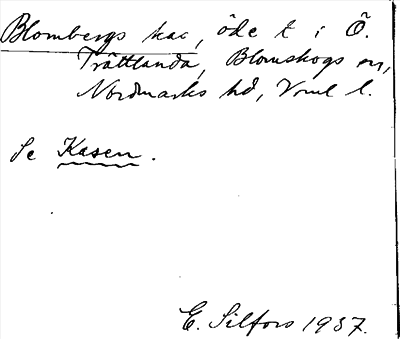 Blombergs kas, öde t i Ö.
Trättlanda, Blomskogs sn,
Nordmarks hd, Vrml l.
Se Kasen.
E. Silfors 1937.